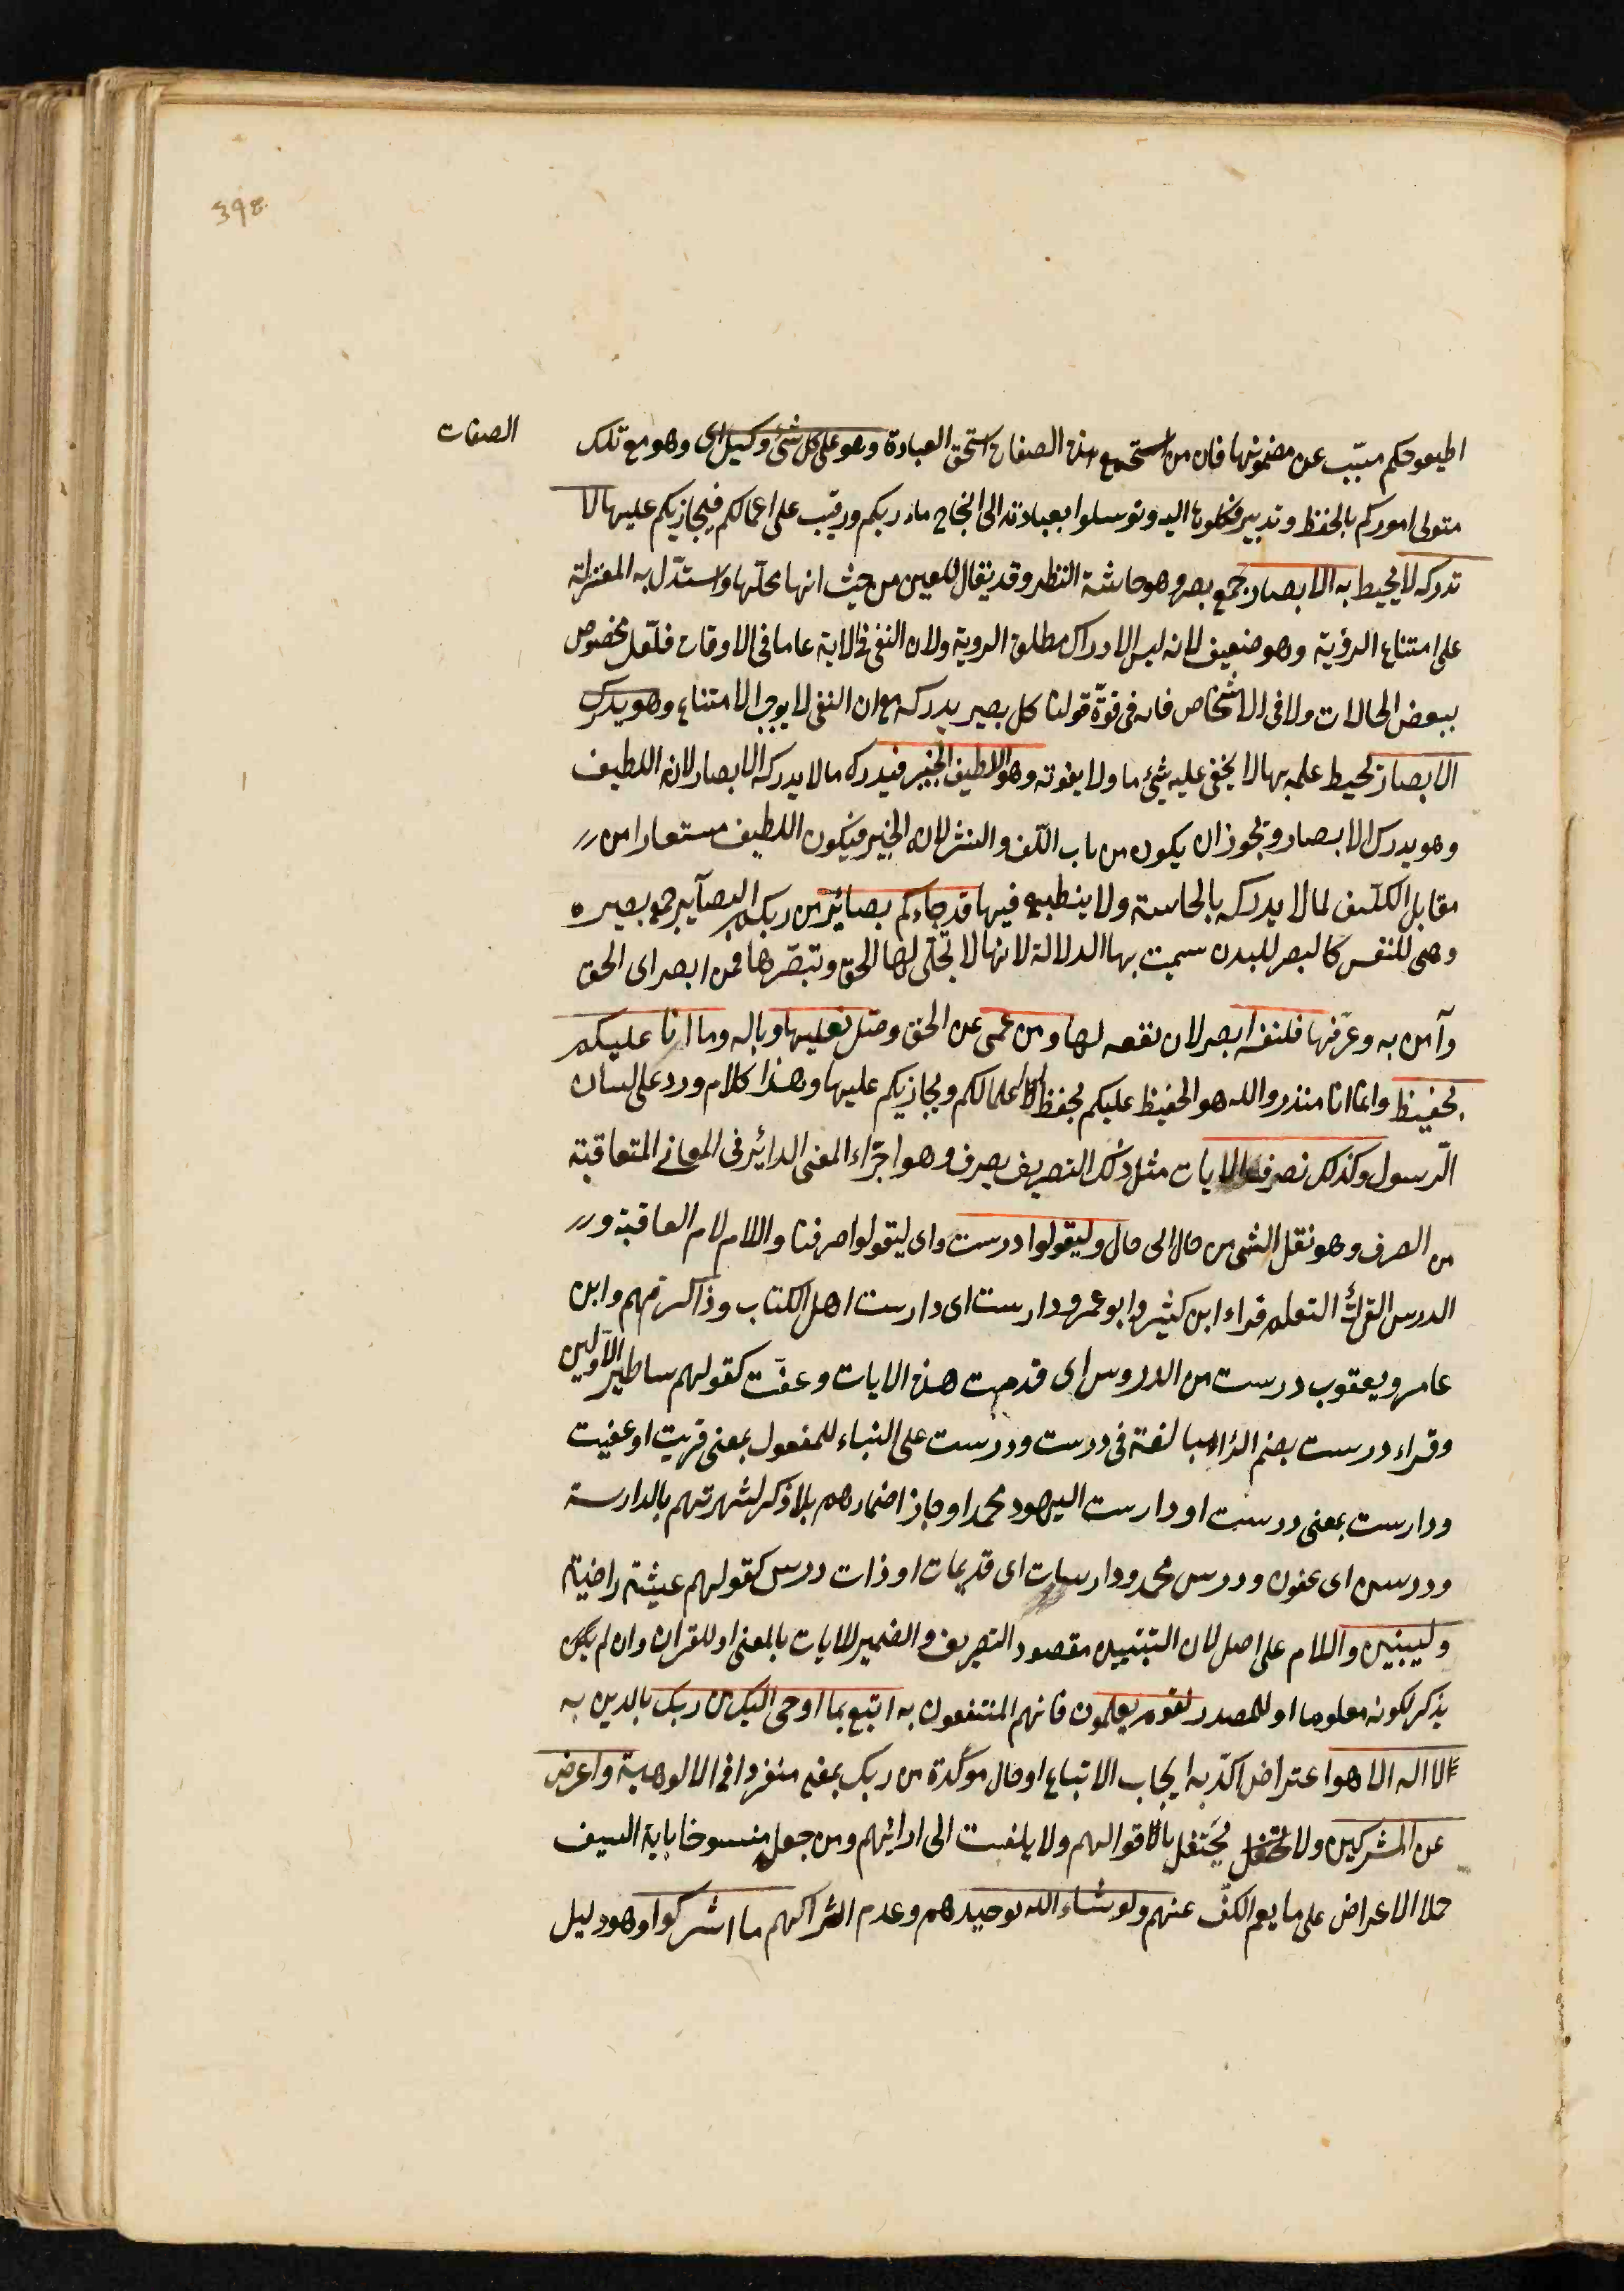 398
اطيعو حكم مسبّب عن مضمونها فان من استجمع هذه الصفات استحق العبادة وهو على كل شئ وكيل اى وهو مع تلك
الصفات
متولى اموركم بالحفظ وتدبير فكلوها اليه وتوسلوا بعبادته الى انجاح ماربكم ورقيب على اعمالكم فيجازيكم عليها لا
تدركه لا يحيط به الابصار جمع بصر وهو حاسة النظر وقد يقال للعين من حيث انها محلّها واستدّل به المعتزلة
على امتناع الرؤية وهو ضعيف لانه ليس الادراك مطلق الروية ولان النفى فى الاية عاما فى الاوقات فلعّل مخصوص
ببعض الحالات ولا فى الاشخاص فانه فى قوّة قولنا كل بصير يدركه مع ان النفى لا يوجب الامتناع وهو يدرك
الابصار يحيط علمه بها لا يخفى عليه شئ ما ولا يفوته وهو اللطيف الخبير فيدركه ما لا يدركه الابصار لانه اللطيف
وهو يدرك الابصار ويجوز ان يكون من باب اللّف والنشر لانه الخبير فيكون اللطيف مستعارا من
مقابل الكثيف لما لا يدركه بالحاسة ولا ينطبع فيها قد جاءكم بصائر من ربكم البصآير جمع بصيره
وهى للنفس كالبصر للبدن سميت بها الدلالة لانها لا تجلّى لها الحق وتبصّرها فمن ابصر اى الحق
وآمن به وعرّفها فلنفسه ابصر لان نفعه لها ومن عمى عن الحق وضل فعليها وباله وما انا عليكم
بحفيظ وانما انا منذر والله هو الحفيظ عليكم يحفظ اعمالكم ويجازيكم عليها وهذا كلام ورد على لسان
الّرسول وكذلك نصرف الايات مثل ذلك التصريف يصرف وهو اجرّاء المعنى الدائر فى المعانى المتعاقبة
من الصرف وهو نقل الشى من حال الى حال وليقولوا درست واى ليقولوا صرفنا واللام لام العاقبة و
الدرس القرأة التعلم قراء ابن كثير وابو عمرو دارست اى دارست اهل الكتاب وذاكرتهم وابن
عامر ويعقوب درست من الدروس اى قدمت هذه الايات وعفّت كقولهم ساطير الاّولين
وقراء درست بضم الراء مبالغة فى درست ودرست على البناء للمفعول بمعنى قريت او عفيت
ودارست بمعنى درست او دارست اليهود محمدا وجاز اضمارهم بلا ذكر لشهرتهم بالدارسة
ودرسن اى عفون ودرس محمد ودارسات اى قديمات او ذات درس كقولهم عيشة راضية
وليبنين واللام على اصل لان التبنيين مقصود التصريف والضمير للايات بالمعنى او للقران وان لم يكن
يذكر لكونه معلوما او للمصدر لقوم يعلمون فانهم المنتفعون به اتبع بما اوحى اليك من ربك بالدين به
لا اله الا هو اعتراض اكدّ به ايجاب الاتباع او حال موكّدة من ربك بمعنى منفردا فى الالوهية واعرض
عن المشركين ولا يحتفل باقوالهم ولا يلفت الى ارائهم ومن جعل منسوخا باية السيف
حلا الاعراض على ما يعم الكفّ عنهم ولو شاء الله توحيدهم وعدم اشراكهم ما اشركوا وهو دليل